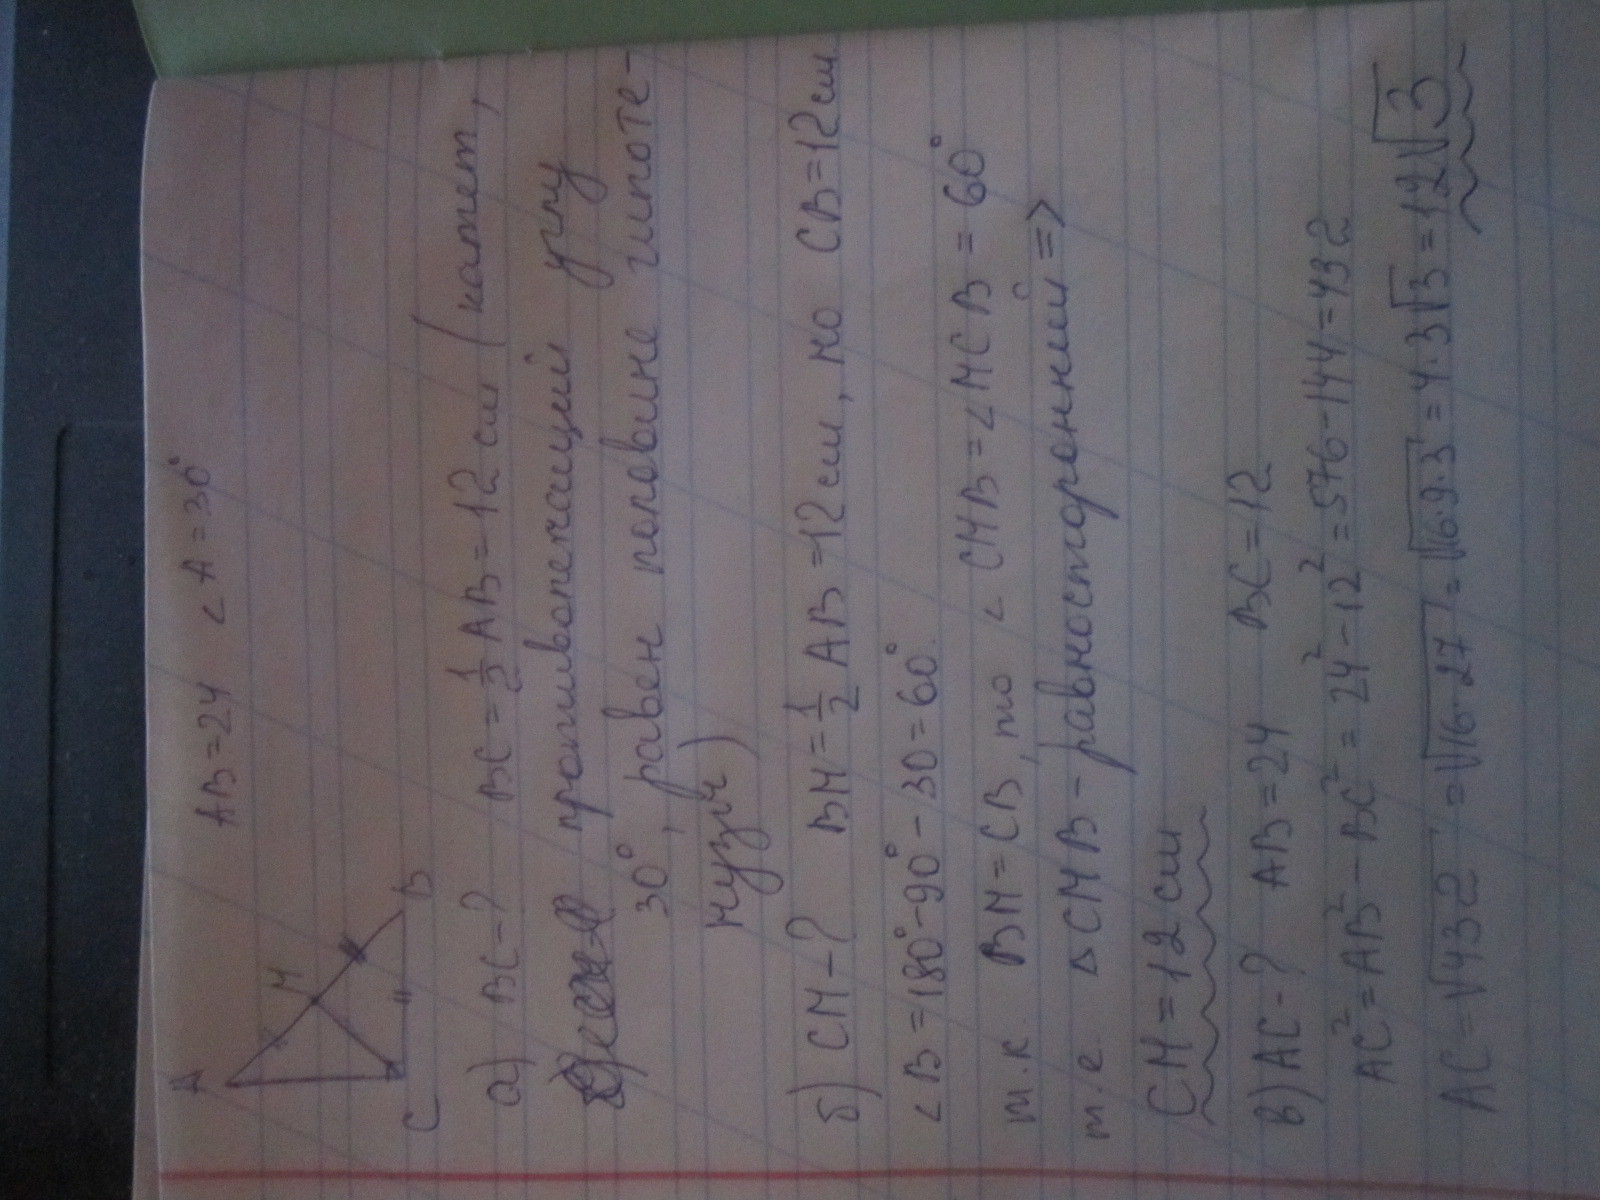 A
M
C
B
AB = 24 < A = 30°
а) BC - ? BC = 1/2 AB = 12 см (катет,
противолежащий углу
30°, равен половине гипоте-
нузы)
б) CM - ? BM = 1/2 AB = 12 см, но CB = 12 см
< B = 180° - 90° - 30 = 60°.
т.к. BM = CB, то < CMB = < MCB = 60°
т.е. △ CMB - равносторонний =>
CM = 12 см
в) AC - ? AB = 24 BC = 12
AC² = AB² - BC² = 24² - 12² = 576 - 144 = 432
AC = √432 = √16·27 = √16·9·3 = 4·3√3 = 12√3